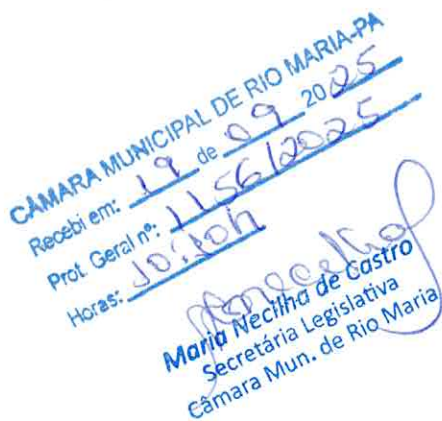 CÂMARA MUNICIPAL DE RIO MARIA-PA
Recebi em: 19 de 09 2025
Prot. Geral nº: 1156/2025
Horas: 10:10h
Maria Necilha de Castro
Secretária Legislativa
Câmara Mun. de Rio Maria